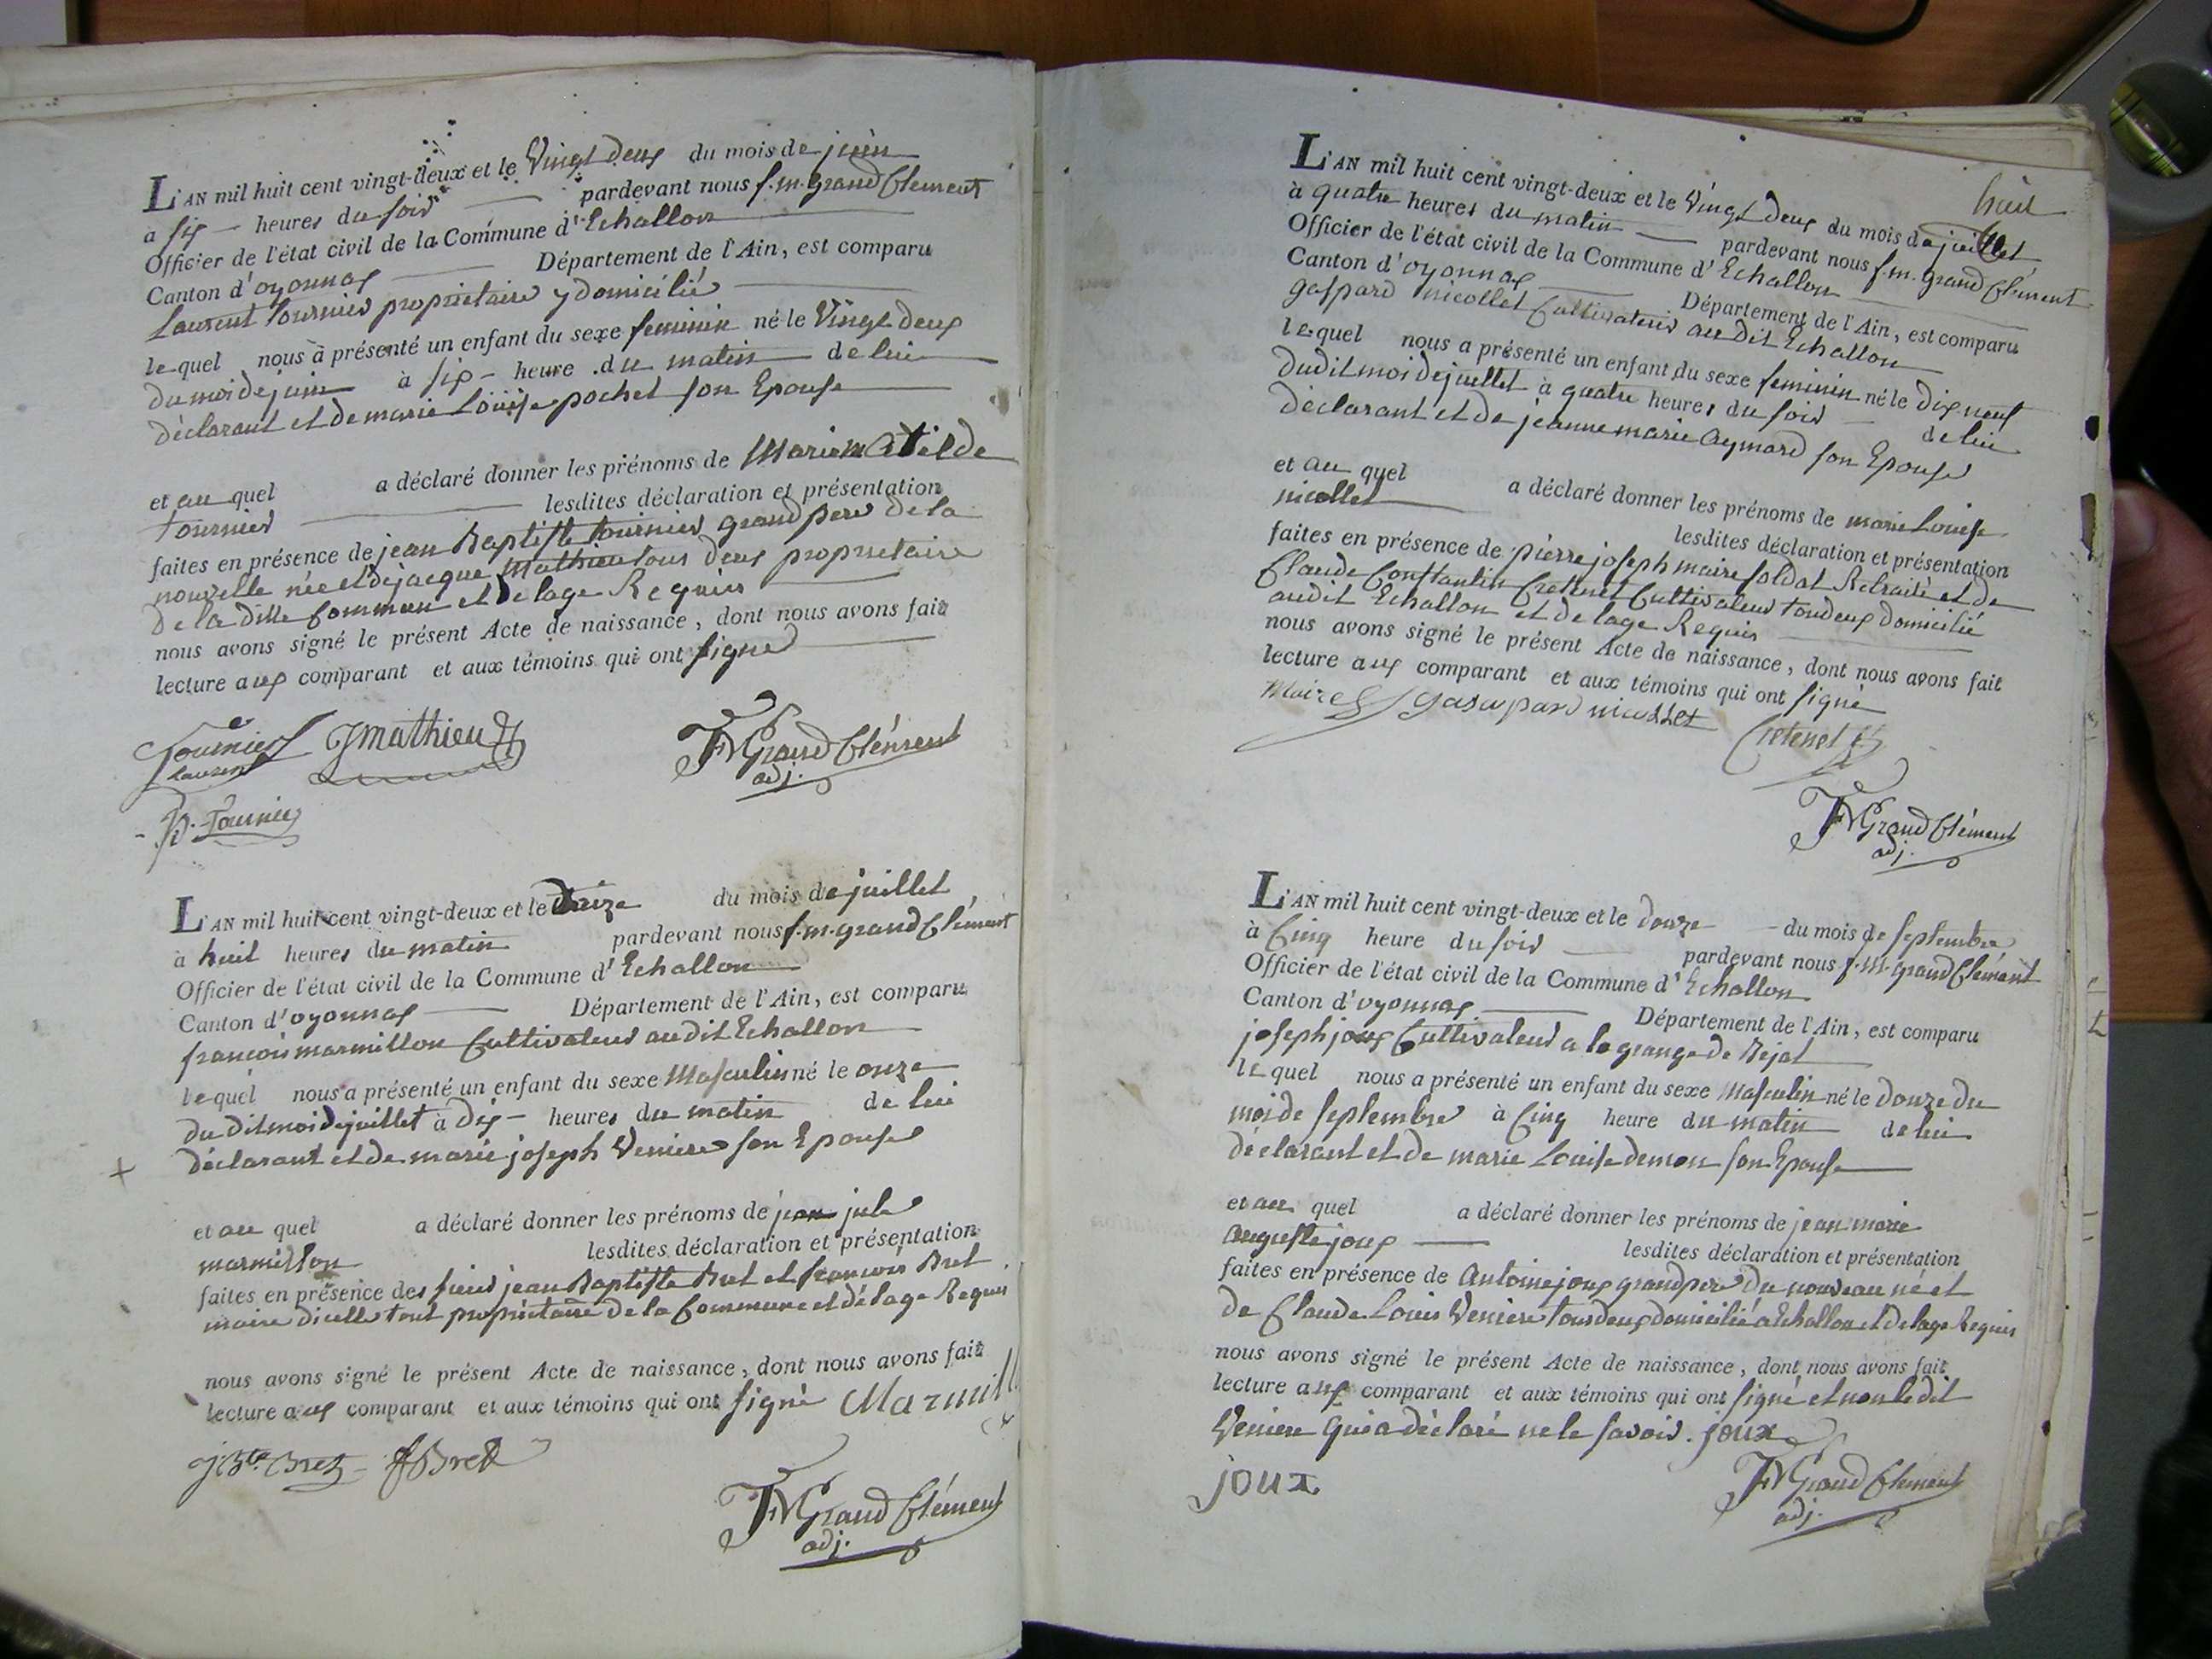 L'AN mil huit cent vingt-deux et le Vingt deux du mois de juin
à six heures du soir pardevant nous f. m. Grand Clement
Officier de l'état civil de la Commune d'Echallon
Canton d'oyonnax Département de l'Ain, est comparu
Laurent tournier propriétaire y domicilié
lequel nous à présenté un enfant du sexe feminin né le Vingt deux
du moi de juin à six heure du matin de lui
déclarant et de marie Louise pochet son Epouse
et au quel a déclaré donner les prénoms de Marie Matilde
tournier lesdites déclaration et présentation
faites en présence de jean Baptiste tournier grand pere de la
nouvelle née et de jacque Mathieu tous deux propriétaire
de la ditte Commune et de lage Requis
nous avons signé le présent Acte de naissance, dont nous avons fait
lecture aux comparant et aux témoins qui ont signed
Tournier Jmathieu FMGrand Clément
laurent adj.
Tournier
L'AN mil huit cent vingt-deux et le du mois de juillet
à huit heures du matin pardevant nous f. m. grand Clément
Officier de l'état civil de la Commune d'Echallon
Canton d'oyonnax Département de l'Ain, est comparu
francois marmillon Cultivateur audit Echallon
lequel nous a présenté un enfant du sexe Masculin né le onze
du dit moi de juillet à dix heures du matin de lui
déclarant et de marie joseph Veniere son Epouse
et au quel a déclaré donner les prénoms de jean jule
marmillon lesdites déclaration et présentation
faites en présence des sieurs jean Baptiste Bret et francois Bret
maire dicelle tout propriétaire de la Commune et de lage Requis
nous avons signé le présent Acte de naissance, dont nous avons fait
lecture aux comparant et aux témoins qui ont signé Marmill
J Bte Bret fBret
FMGrand Clément
adj.
huit
L'AN mil huit cent vingt-deux et le Vingt deux du mois de juillet
à quatre heures du matin pardevant nous f. m. grand Clément
Officier de l'état civil de la Commune d'Echallon
Canton d'oyonnax Département de l'Ain, est comparu
gaspard nicollet Cultivateur au dit Echallon
lequel nous a présenté un enfant du sexe feminin né le dix neuf
dudit moi de juillet à quatre heures du soir de lui
déclarant et de jeanne marie Aymard son Epouse
et au quel a déclaré donner les prénoms de marie Louise
nicollet lesdites déclaration et présentation
faites en présence de pierre joseph maire soldat Retraité et de
Claude Constantin Cretenet Cultivateur tou deux domicilié
audit Echallon et de lage Requis
nous avons signé le présent Acte de naissance, dont nous avons fait
lecture aux comparant et aux témoins qui ont signé
Maire gasapard nicollet
Cretenet
FMGrand Clément
adj.
L'AN mil huit cent vingt-deux et le douze du mois de septembre
à Cinq heure du soir pardevant nous f. M. grand Clément
Officier de l'état civil de la Commune d'Echallon
Canton d'oyonnax Département de l'Ain, est comparu
joseph joux Cultivateur a la grange de Rejat
lequel nous a présenté un enfant du sexe Masculin né le douze du
moi de septembre à Cinq heure du matin de lui
déclarant et de marie Louise demon son Epouse
et au quel a déclaré donner les prénoms de jean marie
auguste joux lesdites déclaration et présentation
faites en présence de Antoine joux grand pere du nouveau né et
de Claude Louis Veniere tous deux domicilié a Echallon et de lage Requis
nous avons signé le présent Acte de naissance, dont nous avons fait
lecture aux comparant et aux témoins qui ont signé et non le dit
Veniere qui a déclaré ne le savoir. joux
joux FMGrand Clement
adj.